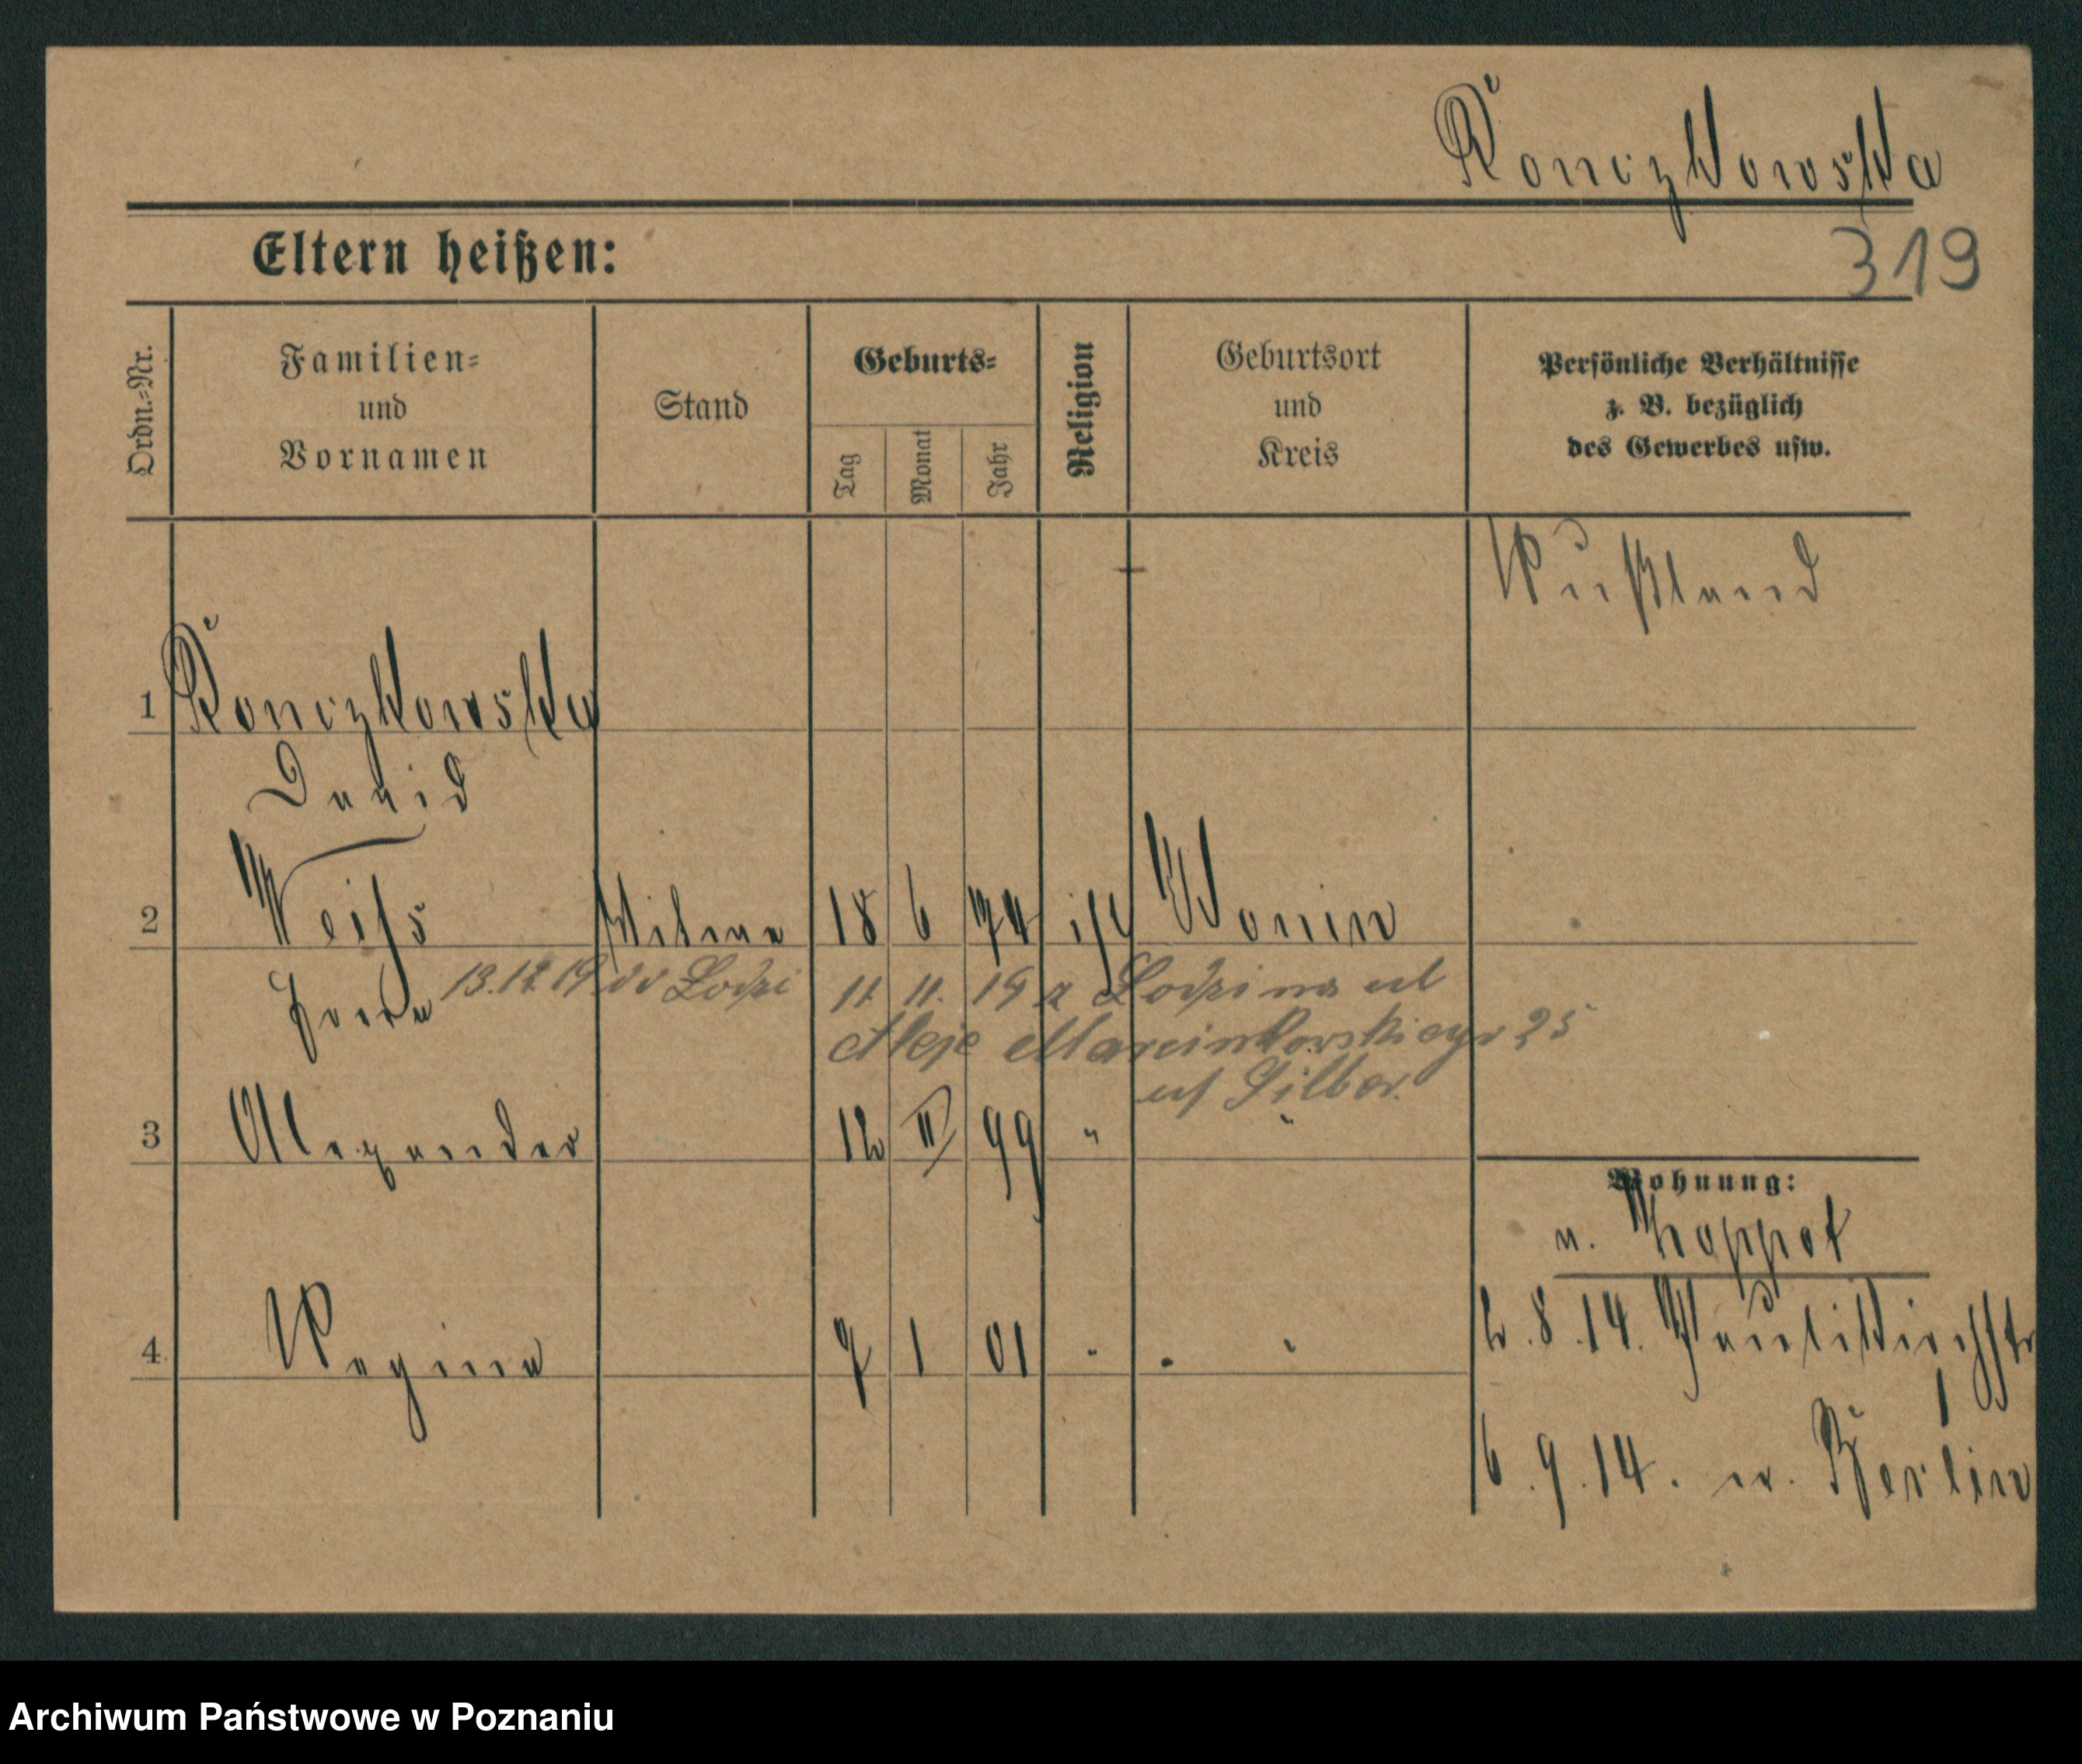 Konczkowska
319
Eltern heißen:
Ordn.-Nr.
Familien- und Vornamen
Stand
Geburts-
Tag
Monat
Jahr
Religion
Geburtsort und Kreis
Persönliche Verhältnisse z. B. bezüglich des Gewerbes usw.
Rußland
1 Konczkowska
David
2 Weiss Witwe 18 6 74 isr Konin
13.12.19 do Łodzi 11. 11. 19 z Łodzi na ul
Aleje Marcinkowskiego 25
Silber.
3 Alexander 12 II 99 "
Wohnung:
n. Zoppot
4 Regina 7 1 01 " "
2.8.14. Paulikirchstr 1
6.9.14. n. Berlin
Archiwum Państwowe w Poznaniu